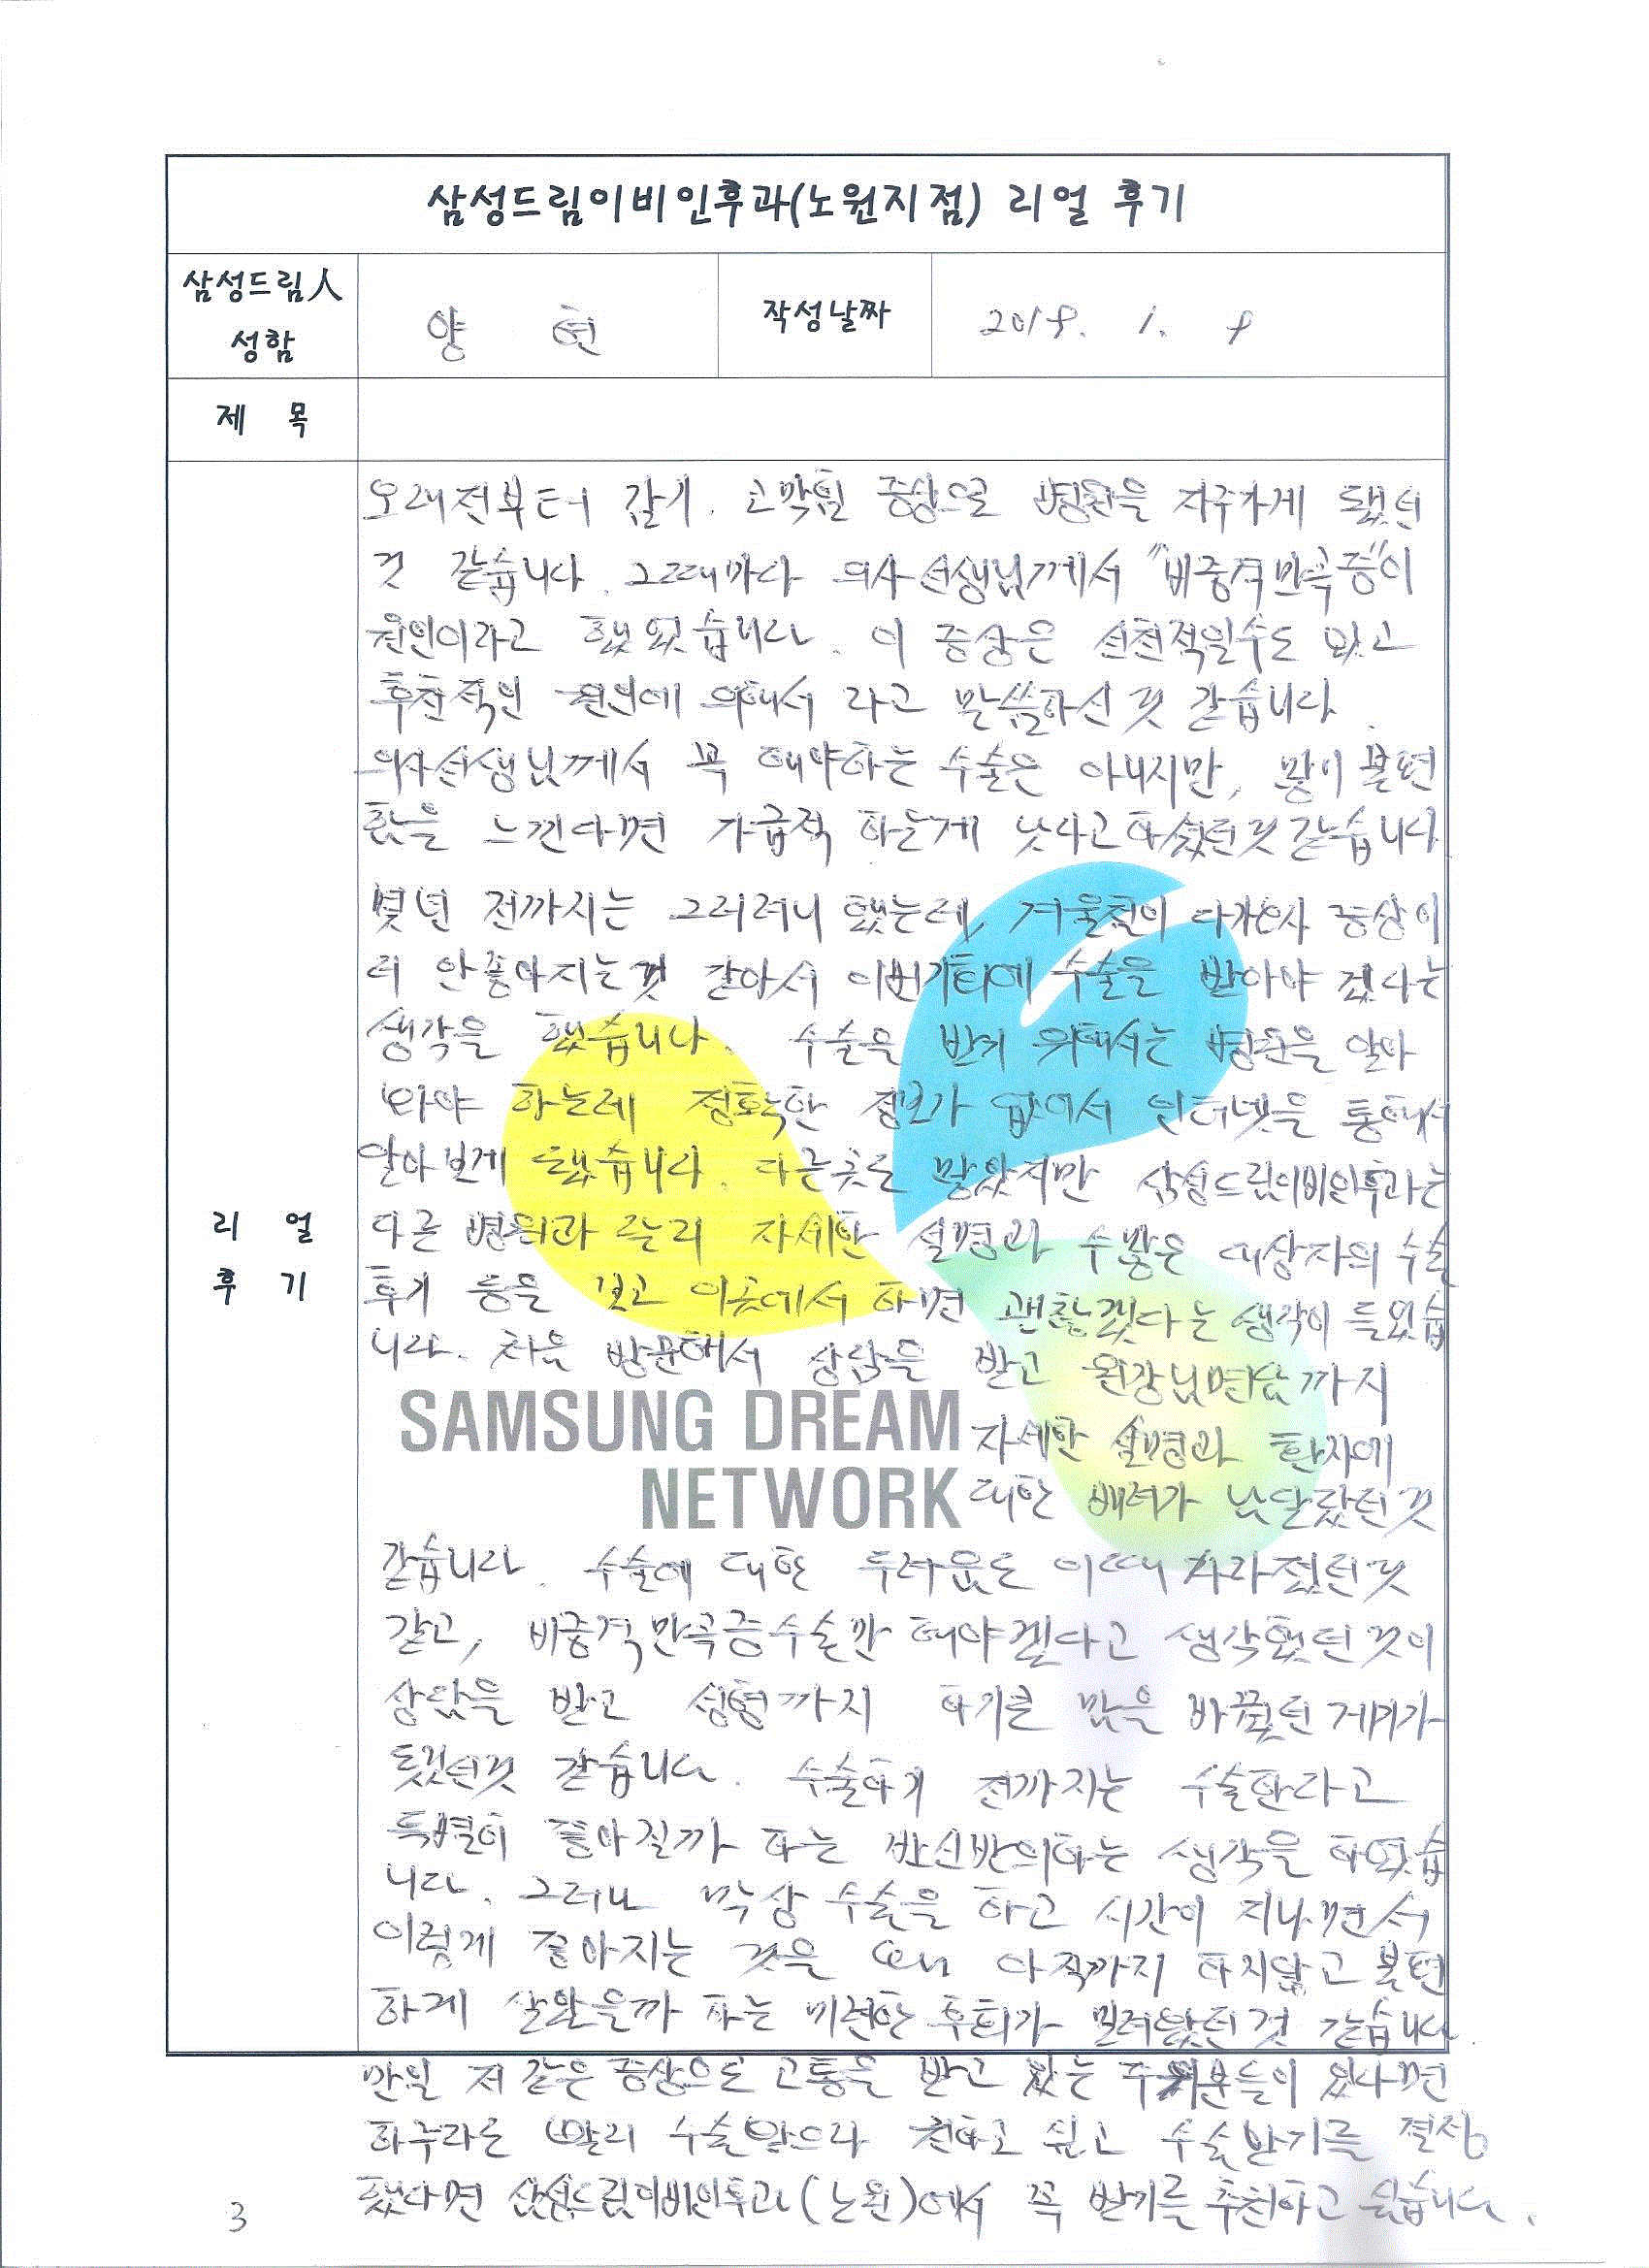 삼성드림이비인후과(노원지점) 리얼 후기
삼성드림人
성함
양 현
작성날짜
제 목
리 얼
후 기
오래전부터 감기. 코막힘 증상으로 병원을 자주가게 됐던
것 같습니다. 그때마다 의사선생님께서 "비중격만곡증"이
원인이라고 했었습니다. 이 증상은 선천적일수도 있고
후천적인 원인에 의해서 라고 말씀하신 것 같습니다.
의사선생님께서 꼭 해야하는 수술은 아니지만, 많이 불편
함을 느낀다면 가급적 하는게 낫다고 하셨던것 같습니다
몇년 전까지는 그러려니 했는데, 겨울철이 다가와서 증상이
더 안좋아지는것 같아서 이번기회에 수술을 받아야 겠다는
생각을 했습니다. 수술을 받기 위해서는 병원을 알아
봐야 하는데 정확한 정보가 없어서 인터넷을 통해서
알아보게 됐습니다. 다른곳도 많았지만 삼성드림이비인후과는
다른 병원과 틀리 자세한 설명과 수많은 대상자의 수술
후기 등을 보고 이곳에서 하면 괜찮겠다는 생각이 들었습
니다. 처음 방문해서 상담을 받고 원장님면담까지
SAMSUNG DREAM
NETWORK
자세한 설명과 환자에
대한 배려가 남달랐던것
같습니다. 수술에 대한 두려움도 이때 사라졌던것
같고, 비중격만곡증수술만 해야겠다고 생각했던것이
상담을 받고 성형까지 하기로 맘을 바꿨던 계기가
됐었던것 같습니다. 수술하기 전까지는 수술한다고
특별히 좋아질까 하는 반신반의하는 생각을 하였습
니다. 그러나 막상 수술을 하고 시간이 지나면서
이렇게 좋아지는 것을 왜 아직까지 하지않고 불편
하게 살았을까 하는 미련한 후회가 밀려왔던 것 같습니다.
만일 저 같은 증상으로 고통을 받고 있는 분들이 있다면
하루라도 빨리 수술받으라 권하고 싶고 수술받기를 결정
했다면 삼성드림이비인후과(노원)에서 꼭 받기를 추천하고 싶습니다.
3